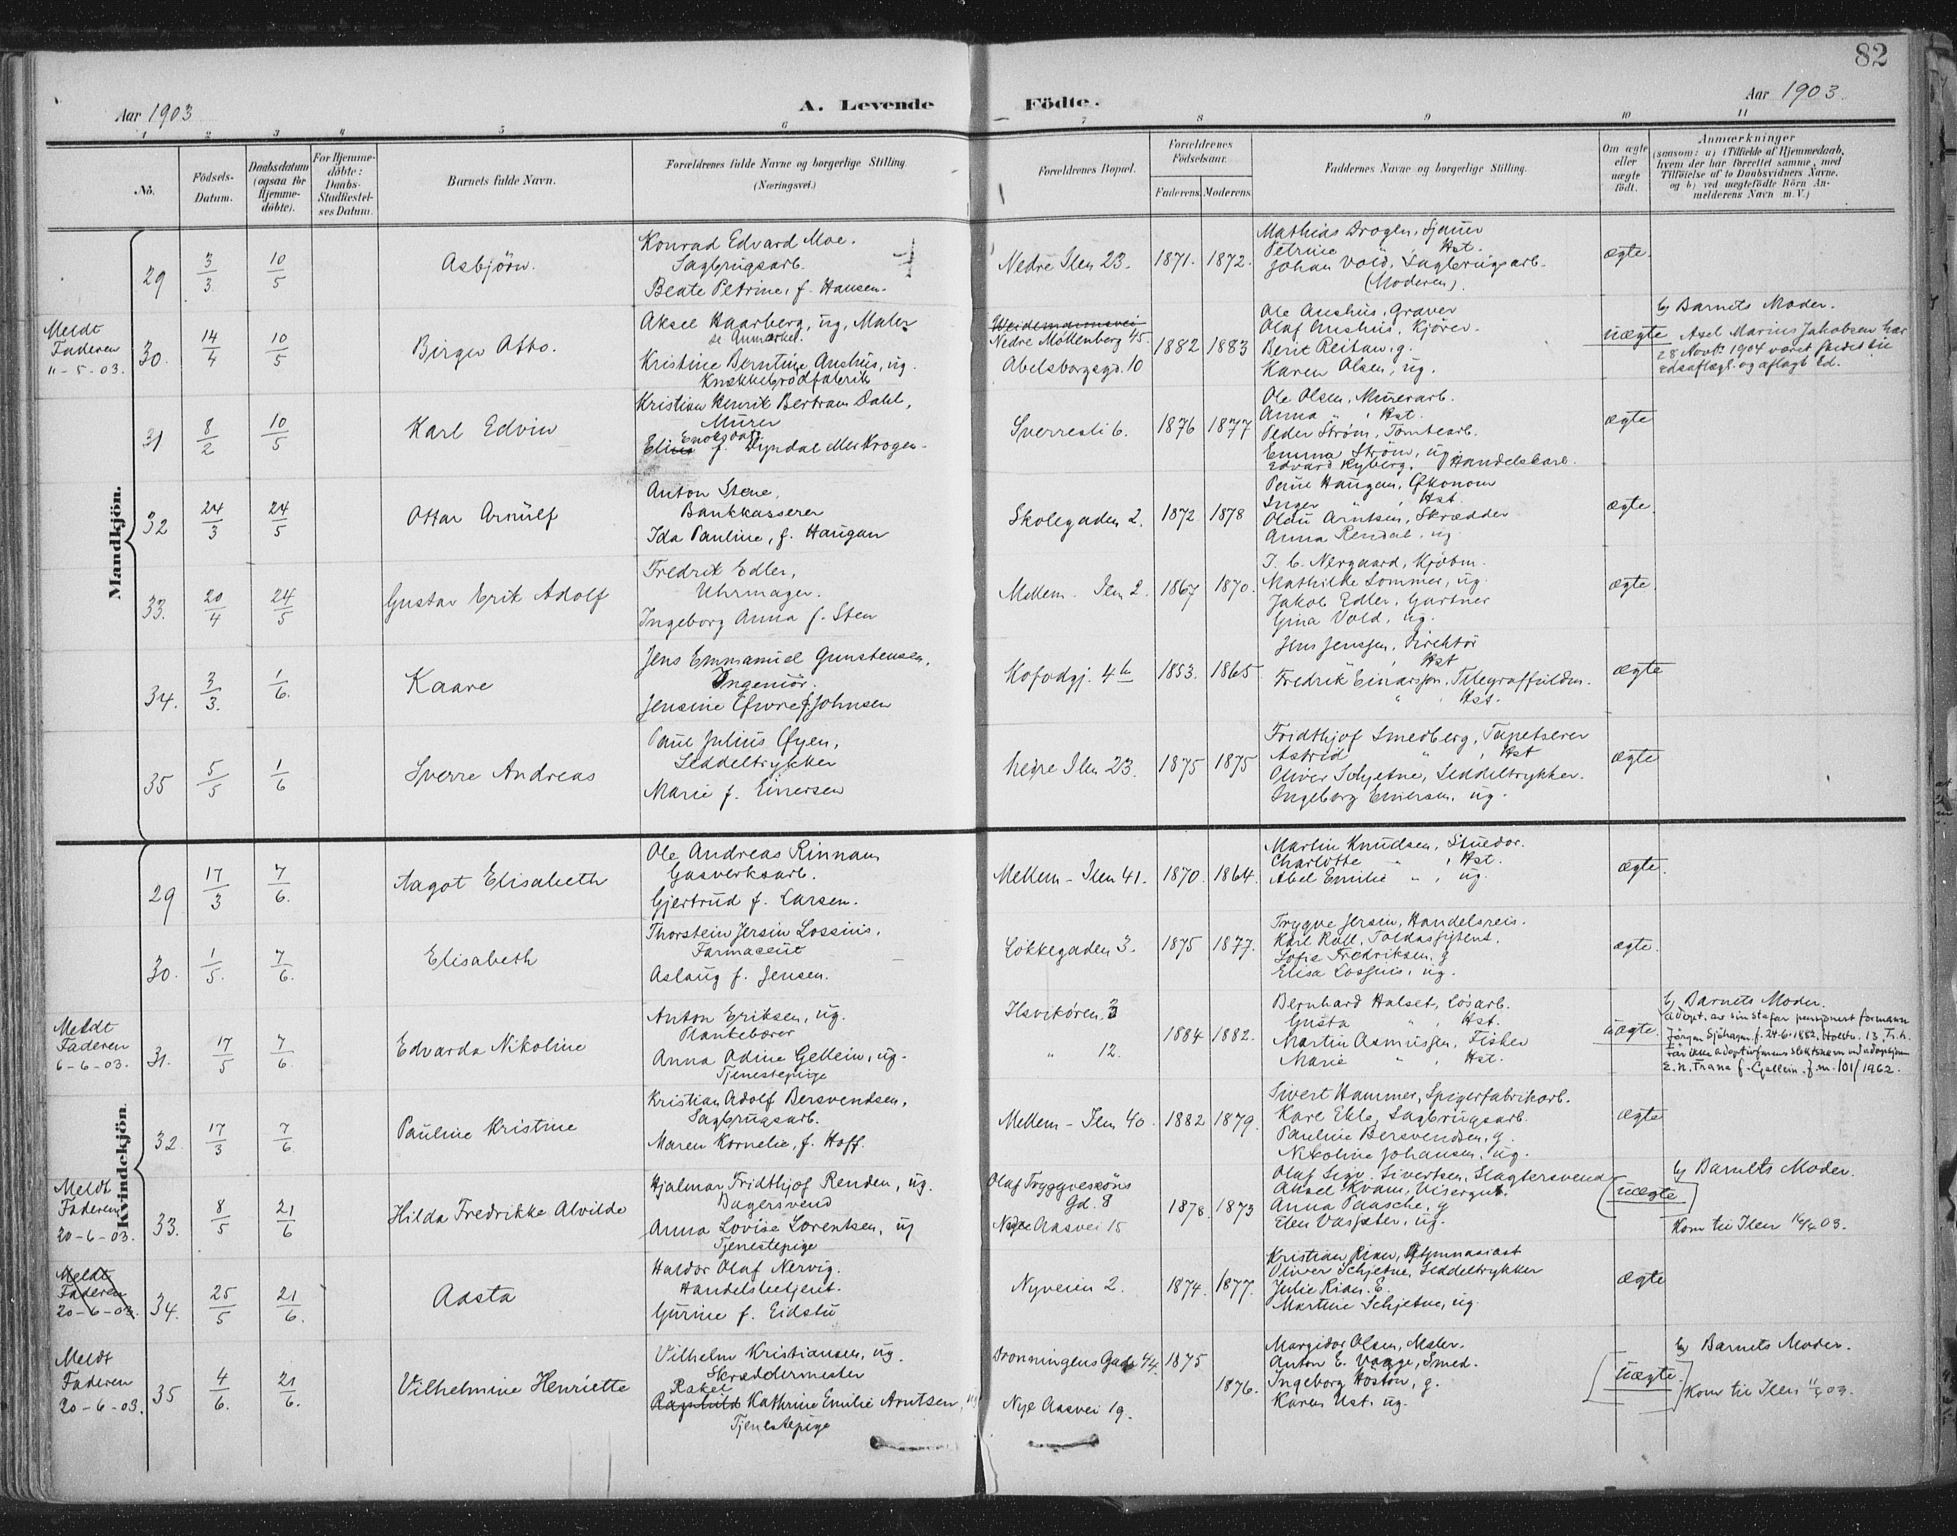 82
Aar 1903
A. Levende
Födte.
Aar 1903.
1 2 3 4 5 6 7 8 9 10 11
No.
Födsels-Datum.
Daabsdatum (ogsaa for Hjemme-döbte).
For Hjemme-döbte: Daabs-Stadfæstel-ses Datum.
Barnets fulde Navn.
Forældrenes fulde Navne og borgerlige Stilling
(Næringsvei.)
Forældrenes Bopæl.
Forældrenes Födselsaar.
Faderens. Moderens.
Faddernes Navne og borgerlige Stilling.
Om ægte eller uægte födt.
Anmærkninger
(saasom: a) i Tilfælde af Hjemmedaab,
hvem der har forrettet samme, med
Tilföielse af to Daabsvidners Navne,
og b) ved uegtefödte Börn An-
melderens Navn m.V.)
Mandkjön.
29 3/3 10/5 Asbjörn.
Konrad Edvard Moe.
Sagbrugsarb.
Beate Petrine, f. Hansen.
Nedre Ilen 23. 1871. 1872.
Mathias Drogen, Sjauer
Petrine " , Hst.
Johan Vold, Sagbrugsarb.
(Moderen).
ægte.
Meldt
Faderen
11-5-03.
30. 14/4 10/5 Birger Otto.
Aksel Haarberg, ug, Maler
se Anmærkn.
Kristine Berntine Aushus, ug.
Knækkebrödfabrik
Nedre Möllenberg 45.
Abelsborgsgd. 10
1882 1883
Ole Aushus, Graver
Olaf Aushus, Kjörer.
Berit Reitan, g.
Karen Olsen, ug.
uægte
b) Barnets Moder.
Axel Marius Jakobsen har
28 Novbr 1904 været stedet til
Edsaflægl. og aflagt Ed.
31 8/2 10/5 Karl Edvin
Kristian Henrik Bertram Dahl,
Murer
f. Dyndal eller Krogen.
Sverresli 6. 1876 1877
Ole Olsen, Murerarb.
Anna " , Hst.
Peder Ström, Tomtearb.
Emma Ström, ug.
Edvard Ryberg, Handelskarl.
ægte
32 24/3 24/5 Ottar Arnulf
Anton Stene,
Bankkasserer
Ida Pauline, f. Haugan
Skolegaden 2. 1872 1878
Paul Haugan, Økonom
Inger " , Hst.
Olau Arntsen, Skrædder
Anna Rendal, ug.
ægte.
33. 20/4 24/5 Gustav Erik Adolf
Fredrik Edler,
Uhrmager.
Ingeborg Anna f. Sten
Mellem-Ilen 2. 1867 1870.
I. C. Nergaard, Kjöbm.
Mathilde Sommer, ug.
Jakob Edler, Gartner
Gina Vold, ug.
ægte.
34. 3/3. 1/6. Kaare
Jens Emmanuel Gunstensen,
Ingeniör.
Jensine f. Johnsen
Kofodgj. 4b 1853. 1865.
Jens Jenssen, Direktör
" , Hst
Fredrik Einarsson, Telegraffuldm.
" , Hst.
ægte
35 5/5 1/6 Sverre Andreas
Paul Julius Øyen,
Seddeltrykker
Marie f. Einersen
Nedre Ilen 23. 1875 1875
Fridthjof Smedberg, Tapetserer
Astrid " , Hst
Oliver Schjetne, Seddeltrykker.
Ingeborg Einersen, ug.
ægte
Kvindekjön.
29 17/3 7/6. Aagot Elisabeth
Ole Andreas Rinnan,
Gasverksarb.
Gjertrud f. Larsen.
Mellem-Ilen 41. 1870. 1864.
Martin Knudsen, Stuedor.
Charlotte " , Hst.
Abel Emilie " , ug.
ægte.
30. 1/5. 7/6. Elisabeth
Thorstein Jersin Lossius,
Farmaceut
Aslaug f. Jensen.
Lökkegaden 3. 1875 1877.
Trygve Jersin, Handelsreis.
Karl Roll, Toldassistent.
Sofie Fredriksen, g
Elisa Lossius, ug.
ægte.
Meldt
Faderen
6-6-03.
31. 17/5 7/6 Edvarda Nikoline
Anton Eriksen, ug.
Plankebærer
Anna Adine Gellein, ug.
Tjenestepige
Ilsvikören 3
" 12.
1884 1882.
Bernhard Halset, Lösarb.
Gusta " , Hst.
Martin Asmussen, Fisker
Marie " , Hst.
uægte.
b) Barnets Moder.
adopt. av sin stefar pensjonert formann
Jörgen Sjöhagen f. 24-6-1882, Holtbr. 13, Tr.h.
får ikke adoptivfarens slektsnavn ved adopsjonen
E. N. Trana f. Gjellein. J.m. 101/1962.
32. 17/3 7/6 Pauline Kristine
Kristian Adolf Bersvendsen,
Sagbrugsarb.
Maren Kornelie, f. Hoff.
Mellem-Ilen 40. 1882 1879.
Sivert Hammer, Spigerfabrikarb.
Kare Ekle, Sagbrugsarb.
Pauline Bersvendsen, g.
Nikoline Johansen, ug.
ægte
Meldt
Faderen
20-6-03.
33. 8/5 21/6 Hilda Fredrikke Alvilde
Hjalmar Fridthjof Renden, ug.
Bagersvend
Anna Lovise Lorentsen, ug
Tjenestepige
Olaf Tryggvesköns
Gd. 8
Nye Aasvei 15
1878. 1873
Olaf Sigv. Sivertsen, Slagtersvend
Aksel Kvam, Visergut.
Anna Paasche, g
Elen Vasseter, ug.
uægte
b) Barnets Moder.
Kom til Ilen 16/4 03.
Meldt
Faderen
20-6-03.
34. 25/5 21/6. Aasta
Haldor Olaf Nervig.
Handelsbetjent.
Gurine f. Eidstu
Nyveien 2. 1874. 1877.
Kristian Rian, Gymnasiast
Oliver Schjetne, Seddeltrykker
Julie Rian, E.
Martine Schjetne, ug.
ægte
Meldt
Faderen
20-6-03.
35 4/6. 21/6. Vilhelmine Henriette
Vilhelm Kristiansen, ug.
Skræddermester
Rakel
Ragnhild Kathrine Emilie Arntsen, ug
Tjenestepige
Dronningens Gade 44.
Nye Aasvei 19.
1875 1876.
Margidor Olsen, Maler.
Anton E. Vaage, Smed.
Ingeborg Hoston, g.
Karen Ust, ug.
uægte.
b) Barnets Moder.
Kom til Ilen 11/5 03.